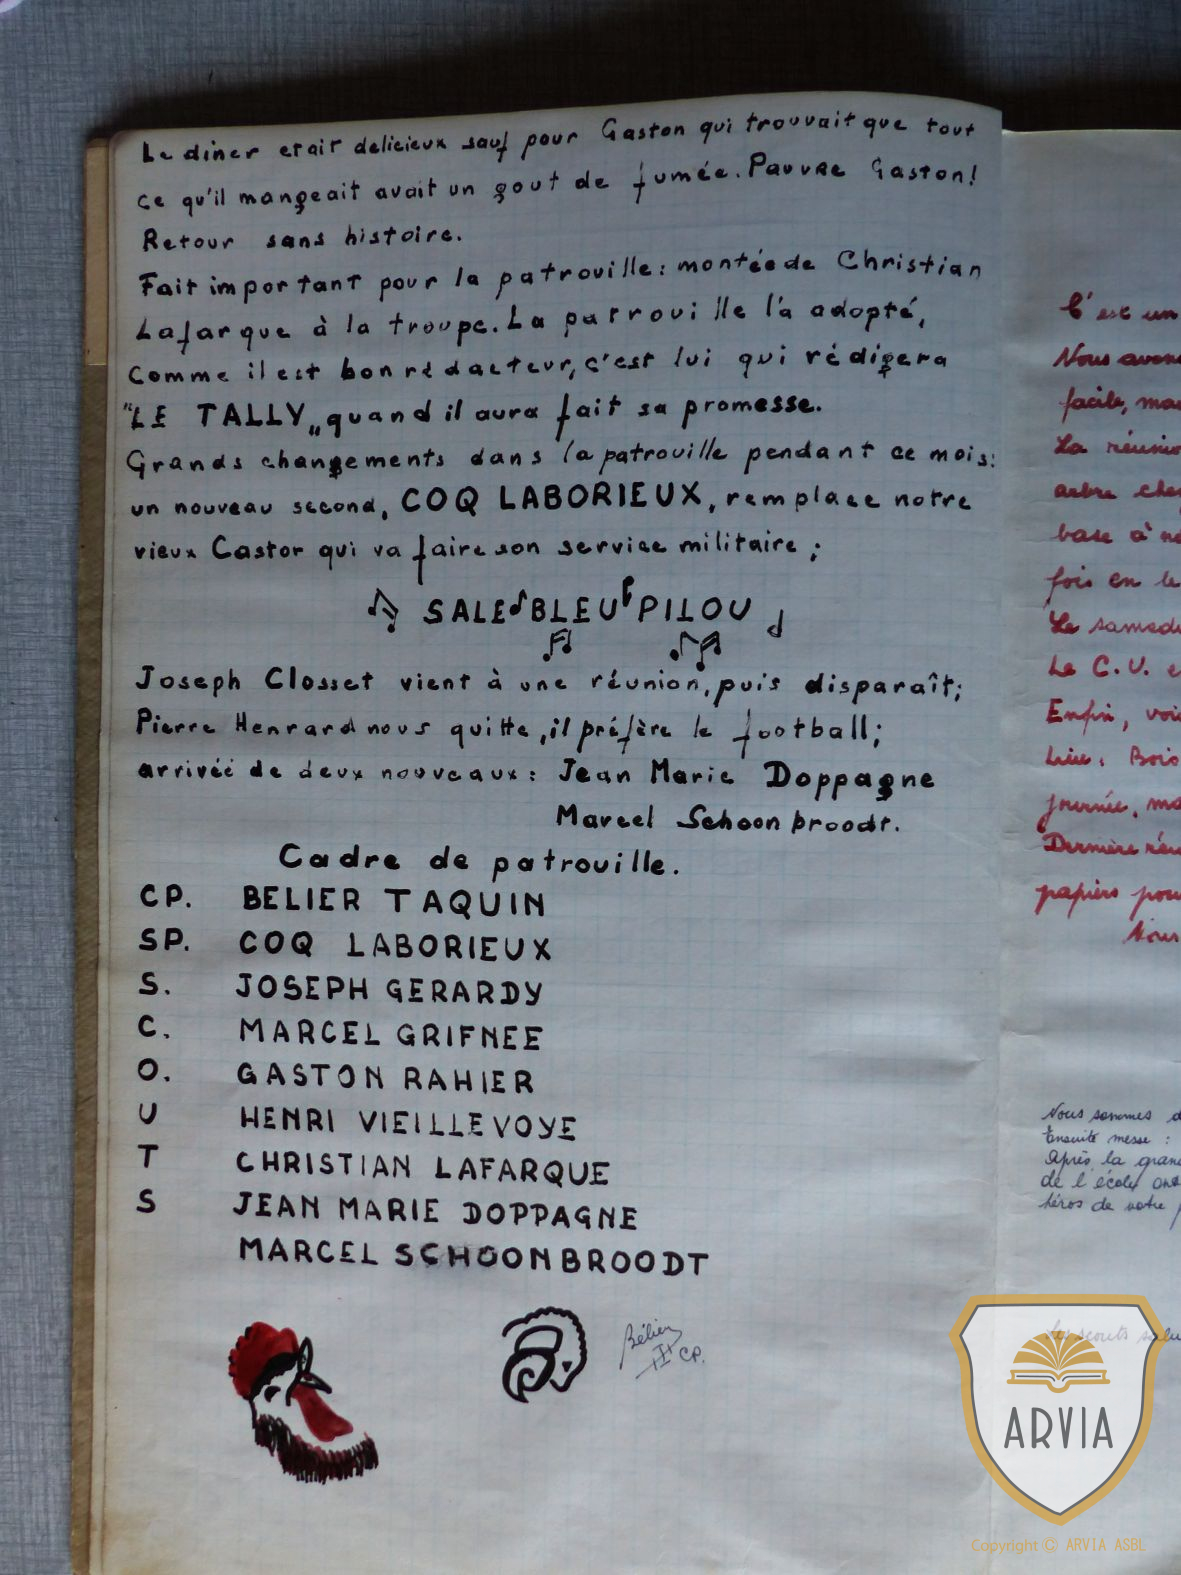 Le diner etait delicieux sauf pour Gaston qui trouvait que tout
ce qu'il mangeait avait un gout de fumée. Pauvre Gaston!
Retour sans histoire.
Fait important pour la patrouille: montée de Christian
Lafarque à la troupe. La patrouille l'a adopté,
Comme il est bon rédacteur, c'est lui qui rédigera
"LE TALLY„ quand il aura fait sa promesse.
Grands changements dans la patrouille pendant ce mois:
un nouveau second, COQ LABORIEUX, remplace notre
vieux Castor qui va faire son service militaire;
SALE BLEU PILOU
Joseph Closset vient à une réunion, puis disparaît;
Pierre Henrard nous quitte, il préfère le football;
arrivée de deux nouveaux: Jean Marie Doppagne
Marcel Schoonbroodt.
Cadre de patrouille.
CP. BELIER TAQUIN
SP. COQ LABORIEUX
S. JOSEPH GERARDY
C. MARCEL GRIFNEE
O. GASTON RAHIER
U HENRI VIEILLEVOYE
T CHRISTIAN LAFARQUE
S JEAN MARIE DOPPAGNE
MARCEL SCHOONBROODT
Bélier
CP.
C'est un
Nous avons
facile, mai
La réunion
arbre
base à
fois en le
Le samedi
Le C.V. e
Enfin, voi
Lieu: Bois
journée, ma
Dernière réu
papiers pour
Nous
Nous sommes d
Ensuite messe:
Après la gran
de l'école ont
héros de votre p
Les scouts salu
ARVIA
Copyright © ARVIA ASBL